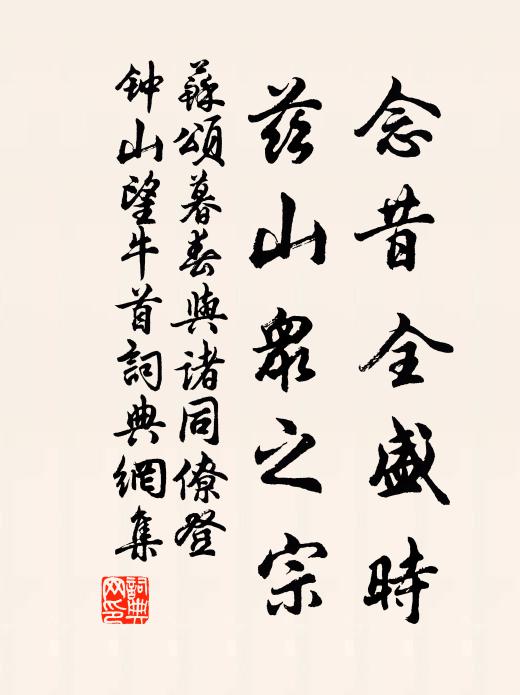 念昔全盛時
茲山眾之宗
蘇頌暮春與諸同僚登
钟山望牛首詞典網集
詞典網印